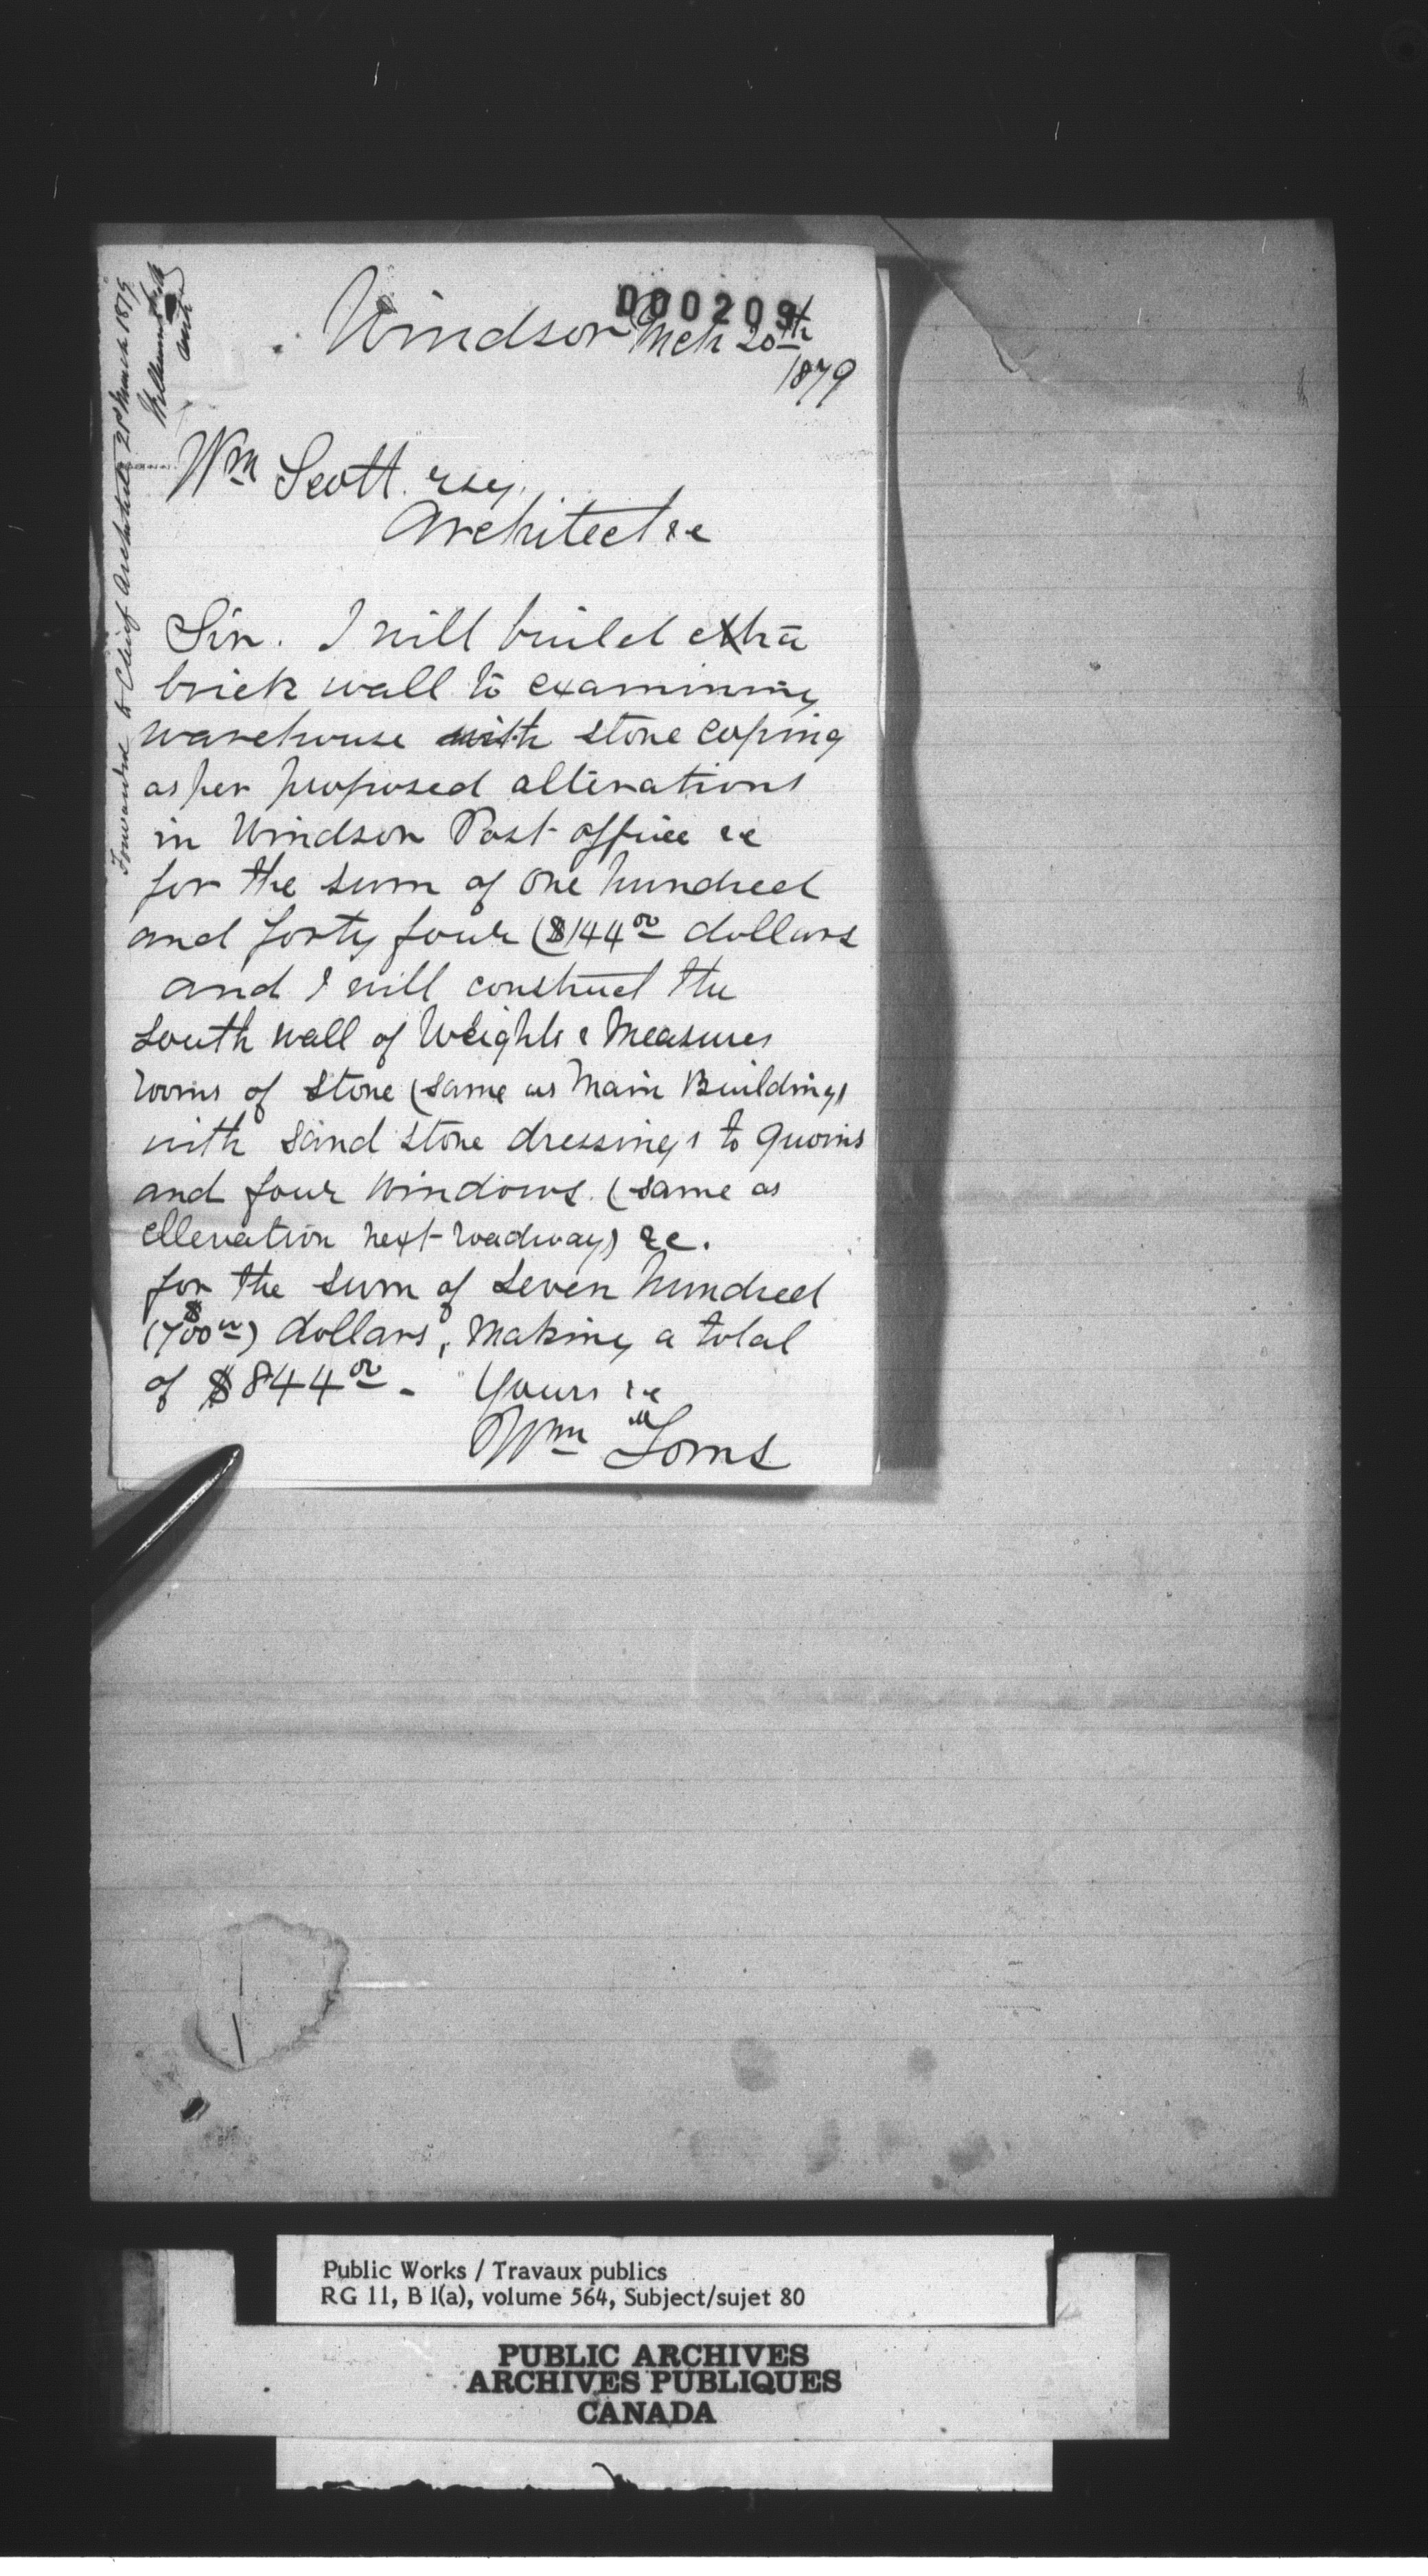 000209
Windsor Mch 20th
1879
Wm Scott esq.
Architect &c
Sir. I will build extra
brick wall to examining
warehouse with stone coping
as per proposed alterations
in Windsor Post office &c
for the sum of one hundred
and forty four ($144 00 dollars
and I will construct the
South wall of Weights & Measures
rooms of stone (same as Main Building)
with sand stone dressings to quoins
and four windows (same as
ellevation next roadway) &c.
for the sum of seven hundred
($700 00) dollars, making a total
of $844 00 - Yours &c
Wm
Forwarded to Chief Architect 21st March 1879
Public Works / Travaux publics
RG 11, B 1(a), volume 564, Subject/sujet 80
PUBLIC ARCHIVES
ARCHIVES PUBLIQUES
CANADA